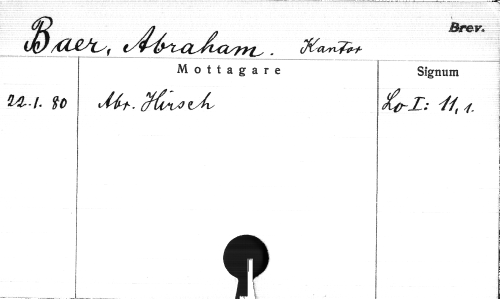 Baer, Abraham. Kantor Brev.
Mottagare Signum
22.1. 80 Abr. Hirsch Lo I: 11, 1.